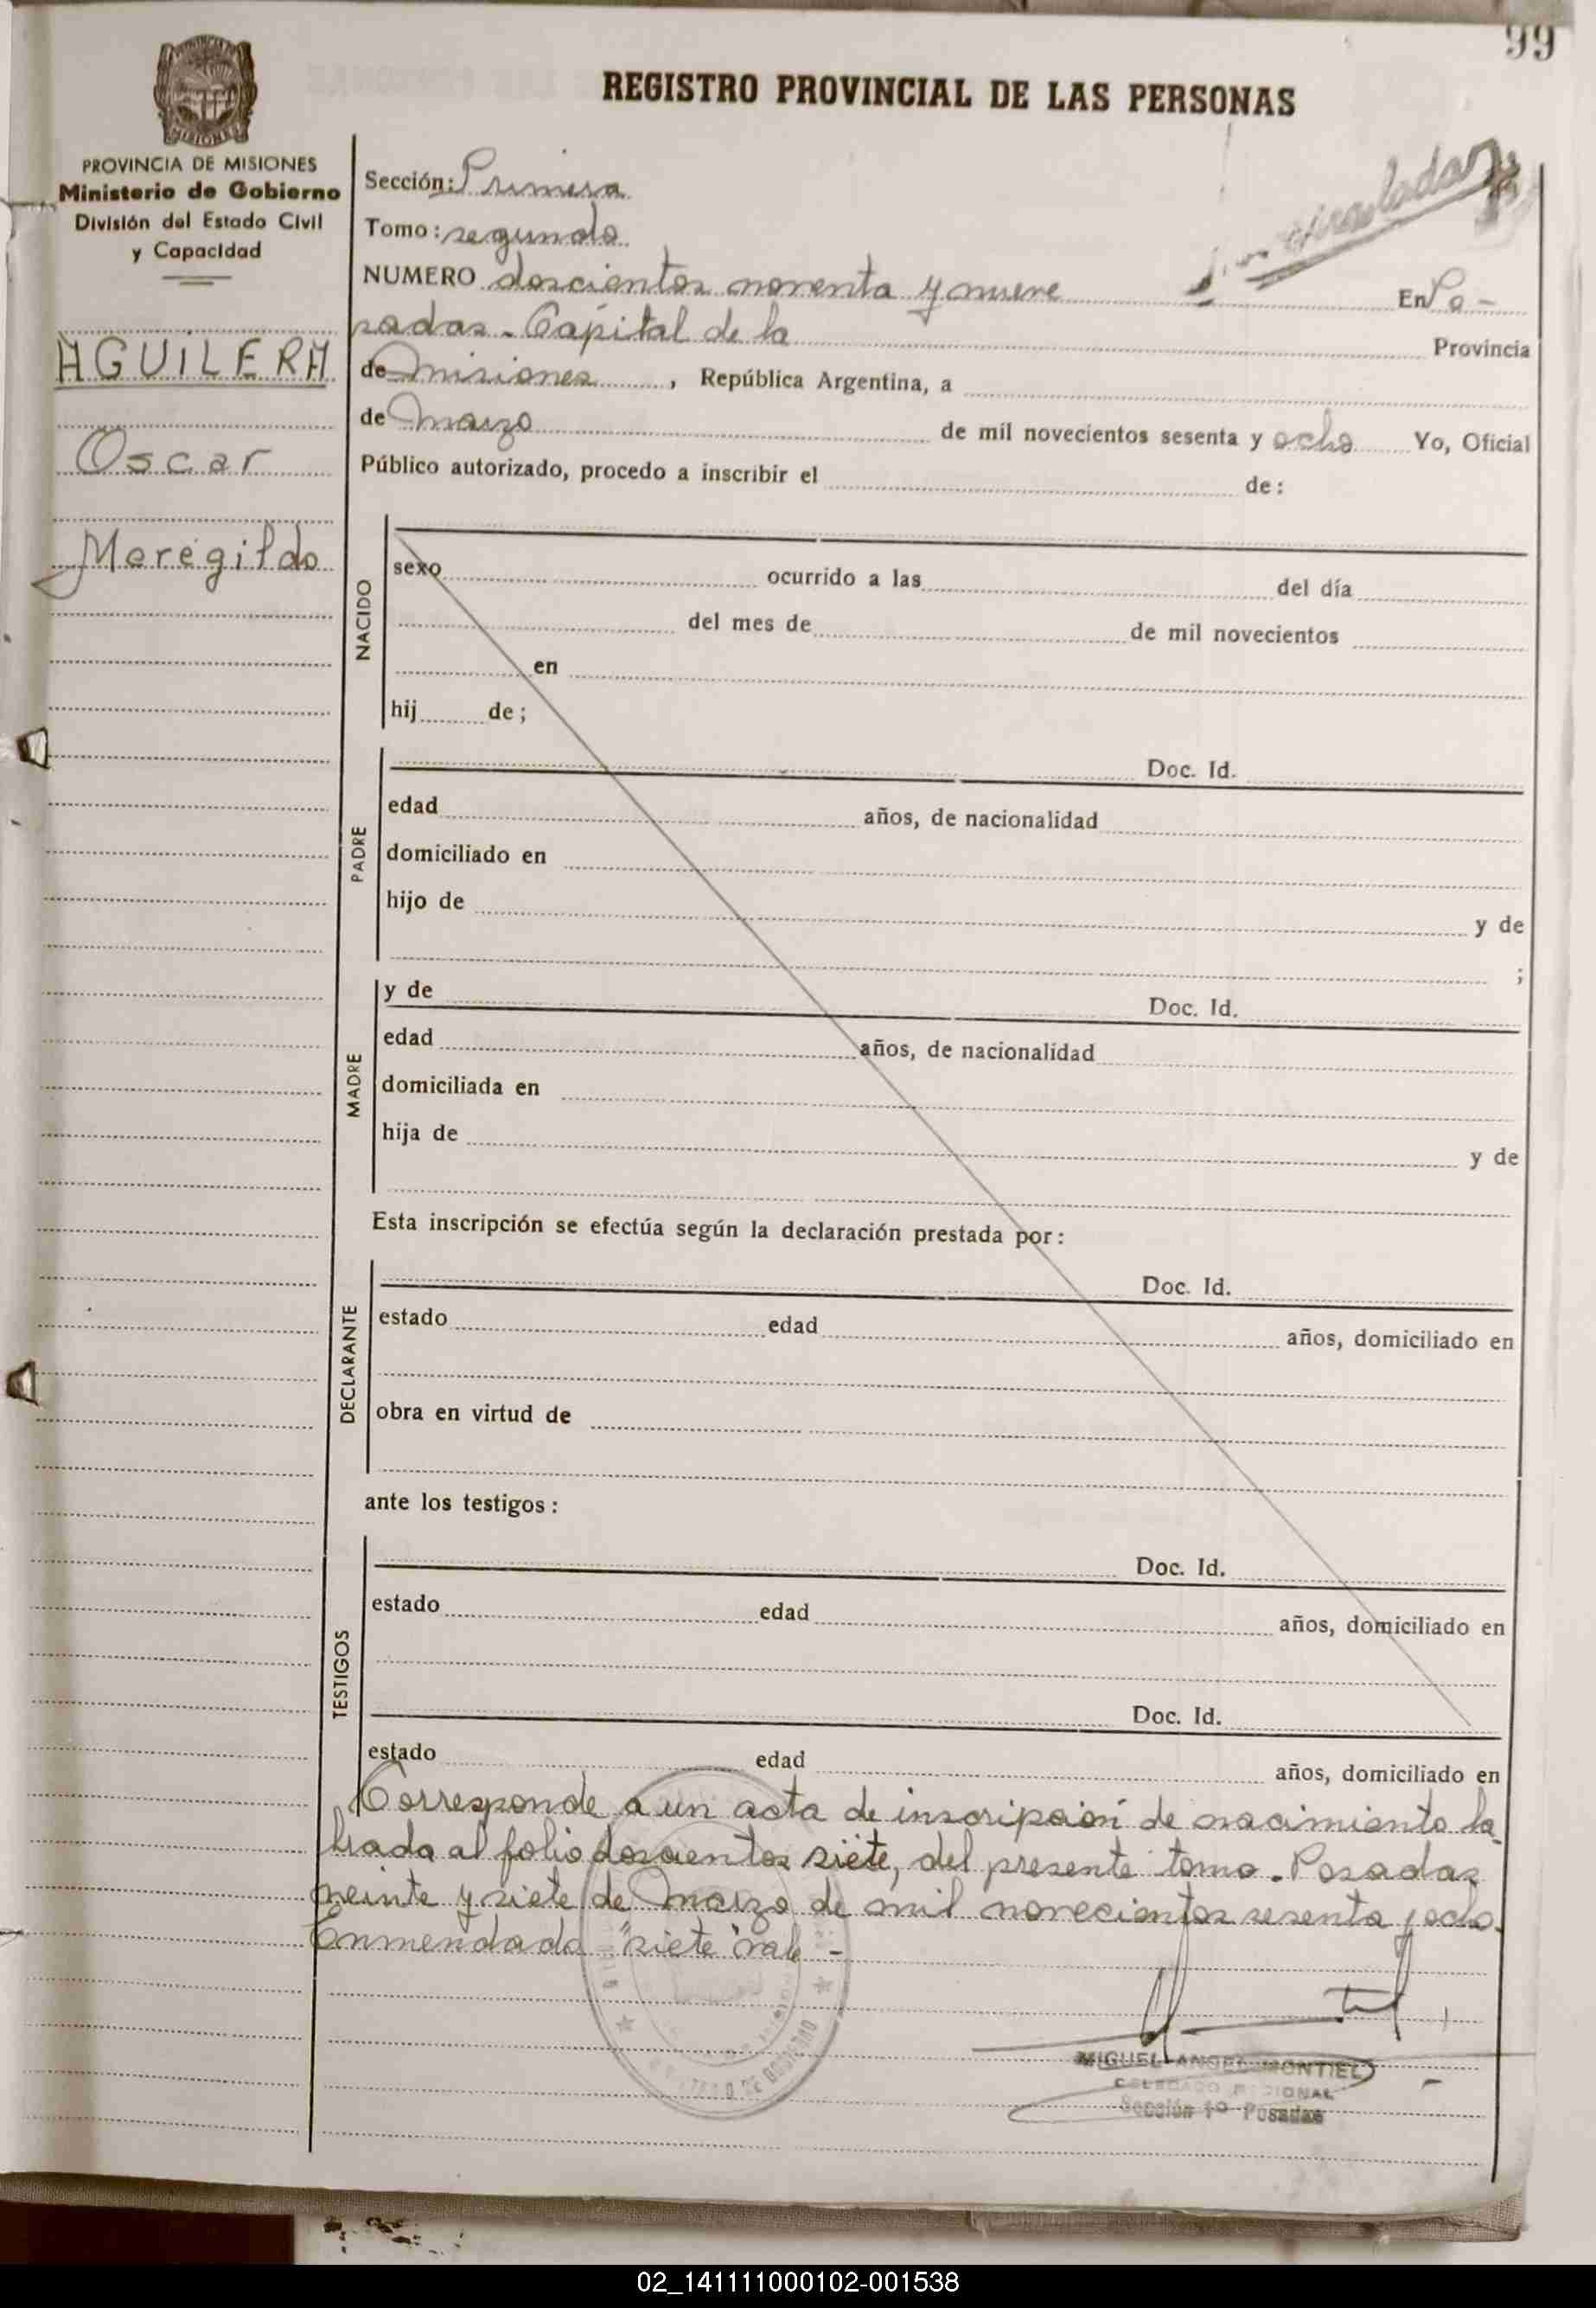 99
REGISTRO PROVINCIAL DE LAS PERSONAS
PROVINCIA DE MISIONES
Ministerio de Gobierno
División del Estado Civil
y Capacidad
AGUILERA
Oscar
Meregildo
Sección: Primera
Tomo: segundo
NUMERO doscientos noventa y nueve En Po-
sadas - Capital de la Provincia
de misiones, República Argentina, a
de marzo de mil novecientos sesenta y ocho Yo, Oficial
Público autorizado, procedo a inscribir el de:
NACIDO
sexo ocurrido a las del día
del mes de de mil novecientos
en
hij de;
PADRE
Doc. Id.
edad años, de nacionalidad
domiciliado en
hijo de y de
;
MADRE
y de Doc. Id.
edad años, de nacionalidad
domiciliada en
hija de y de
Esta inscripción se efectúa según la declaración prestada por:
DECLARANTE
Doc. Id.
estado edad años, domiciliado en
obra en virtud de
ante los testigos:
TESTIGOS
Doc. Id.
estado edad años, domiciliado en
Doc. Id.
estado edad años, domiciliado en
Corresponde a un acta de inscripción de nacimiento la
brada al folio doscientos siete, del presente tomo. Posadas
veinte y siete de marzo de mil novecientos sesenta y ocho.
Enmendado "siete" vale -
MIGUEL ANGEL MONTIEL
DELEGADO REGIONAL
Sección 1º Posadas
02_141111000102-001538